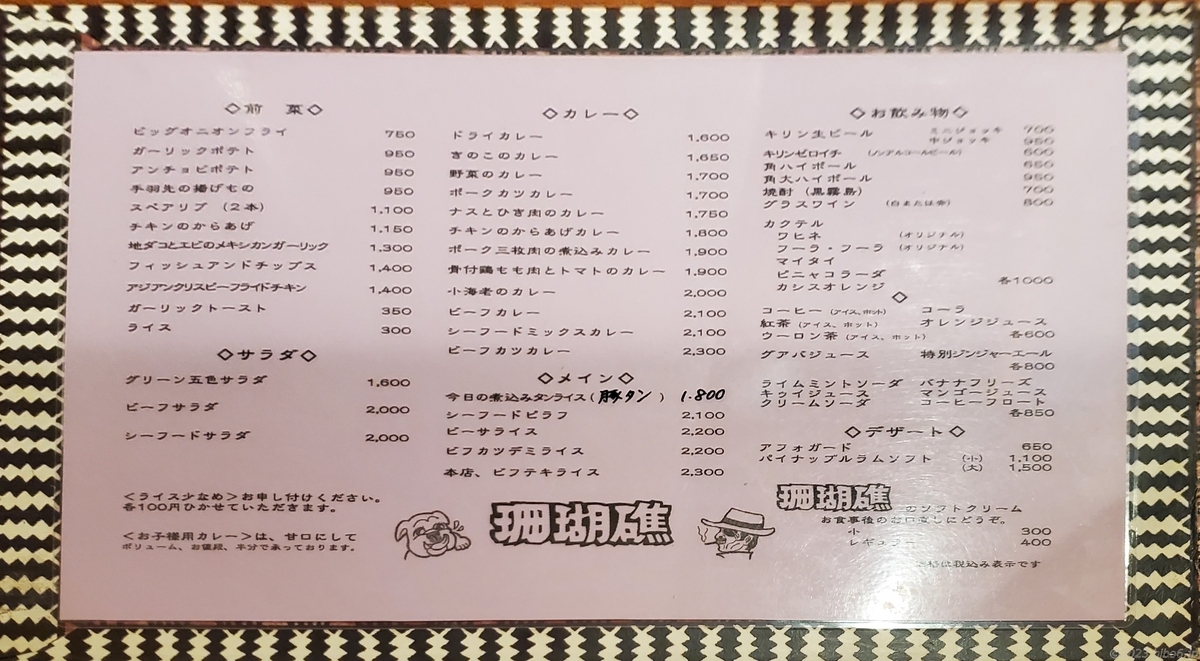 ◇前 菜◇
ビッグオニオンフライ 750
ガーリックポテト 950
アンチョビポテト 950
手羽先の揚げもの 950
スペアリブ（2本） 1,100
チキンのからあげ 1,150
地ダコとエビのメキシカンガーリック 1,300
フィッシュアンドチップス 1,400
アジアンクリスピーフライドチキン 1,400
ガーリックトースト 350
ライス 300
◇サラダ◇
グリーン五色サラダ 1,600
ビーフサラダ 2,000
シーフードサラダ 2,000
＜ライス少なめ＞お申し付けください。
各100円ひかせていただきます。
＜お子様用カレー＞は、甘口にして
ボリューム、お値段、半分で承っております。
◇カレー◇
ドライカレー 1,600
きのこのカレー 1,650
野菜のカレー 1,700
ポークカツカレー 1,700
ナスとひき肉のカレー 1,750
チキンのからあげカレー 1,800
ポーク三枚肉の煮込みカレー 1,900
骨付鶏もも肉とトマトのカレー 1,900
小海老のカレー 2,000
ビーフカレー 2,100
シーフードミックスカレー 2,100
ビーフカツカレー 2,300
◇メイン◇
今日の煮込みタンライス（豚タン） 1.800
シーフードピラフ 2,100
ビーサライス 2,200
ビフカツデミライス 2,200
本店、ビフテキライス 2,300
珊瑚礁
◇お飲み物◇
キリン生ビール ミニジョッキ 700
中ジョッキ 950
キリンゼロイチ （ノンアルコールビール） 600
角ハイボール 650
角大ハイボール 950
焼酎（黒霧島） 700
グラスワイン （白または赤） 800
カクテル
ワヒネ （オリジナル）
フーラ・フーラ （オリジナル）
マイタイ
ピニャコラーダ
カシスオレンジ 各1000
◇
コーヒー（アイス、ホット） コーラ
紅茶（アイス、ホット） オレンジジュース
ウーロン茶（アイス、ホット） 各600
グアバジュース 特別ジンジャーエール
各800
ライムミントソーダ バナナフリーズ
キゥイジュース マンゴージュース
クリームソーダ コーヒーフロート
各850
◇デザート◇
アフォガード 650
パイナップルラムソフト （小） 1,100
（大） 1,500
珊瑚礁のソフトクリーム
お食事後のお口直しにどうぞ。
小 300
レギュラー 400
価格は税込み表示です